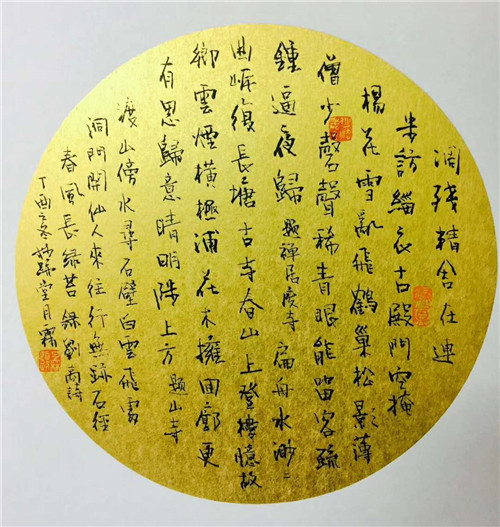 凋殘精舍在連
步訪緇衣古殿門空掩
楊花雪亂飛鶴巢松影薄
僧少磬聲稀青眼能留客疏
鍾逼夜歸 題禅居廢寺 扁舟水渺〻
曲岸復長塘古寺春山上登樓憶故
鄉雲煙橫極浦花木擁回廊更
有思歸意晴明陟上方 題山寺
渡山傍水尋石壁白雲飛處
洞門開仙人來往行無跡石徑
春風長綠苔 錄劉商詩
丁酉之冬妙跡堂月霜